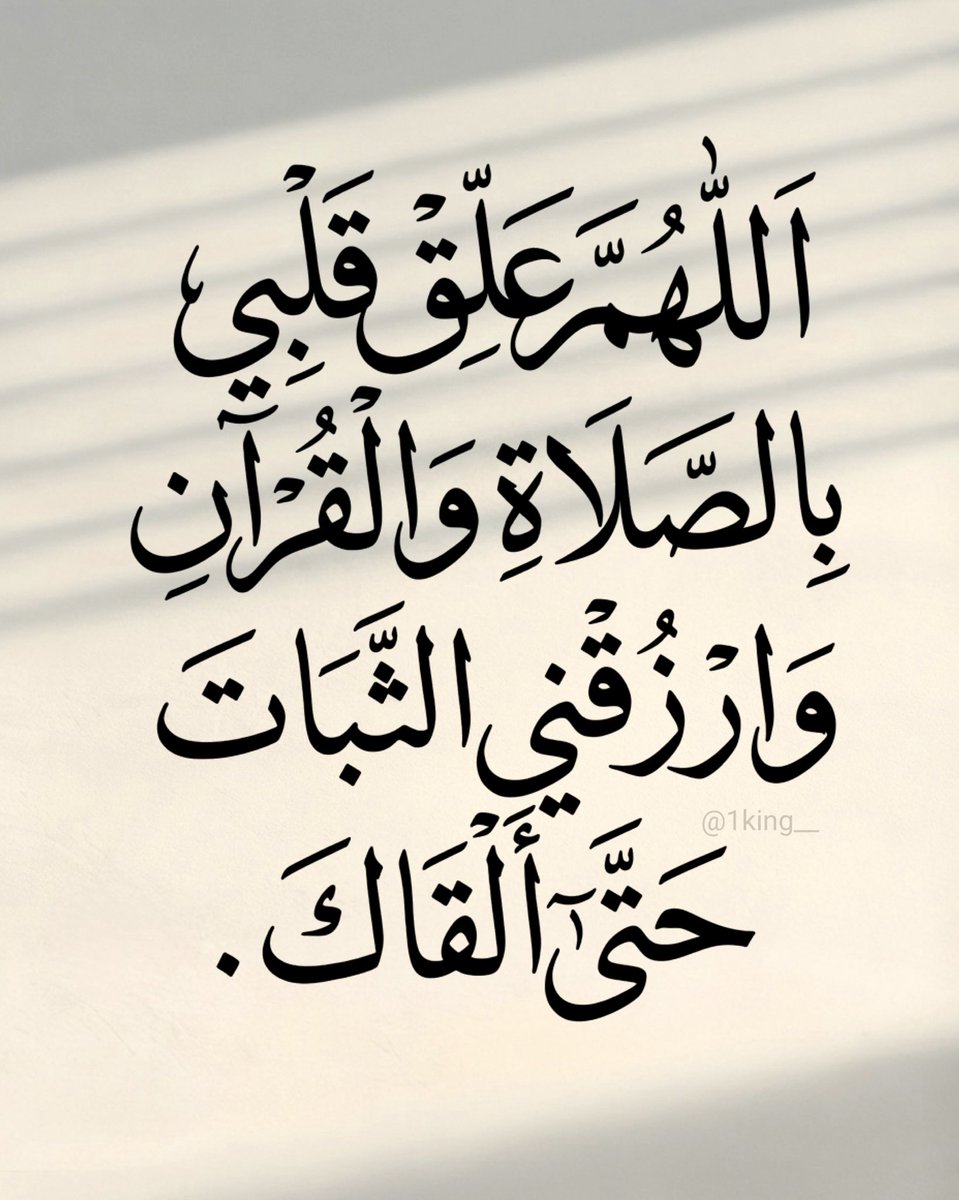 اَللّٰهُمَّ عَلِّقْ قَلْبِي
بِالصَّلَاةِ وَالْقُرْآنِ
وَارْزُقْنِي الثَّبَاتَ
@1king__
حَتَّىٰٓ أَلْقَاكَ.